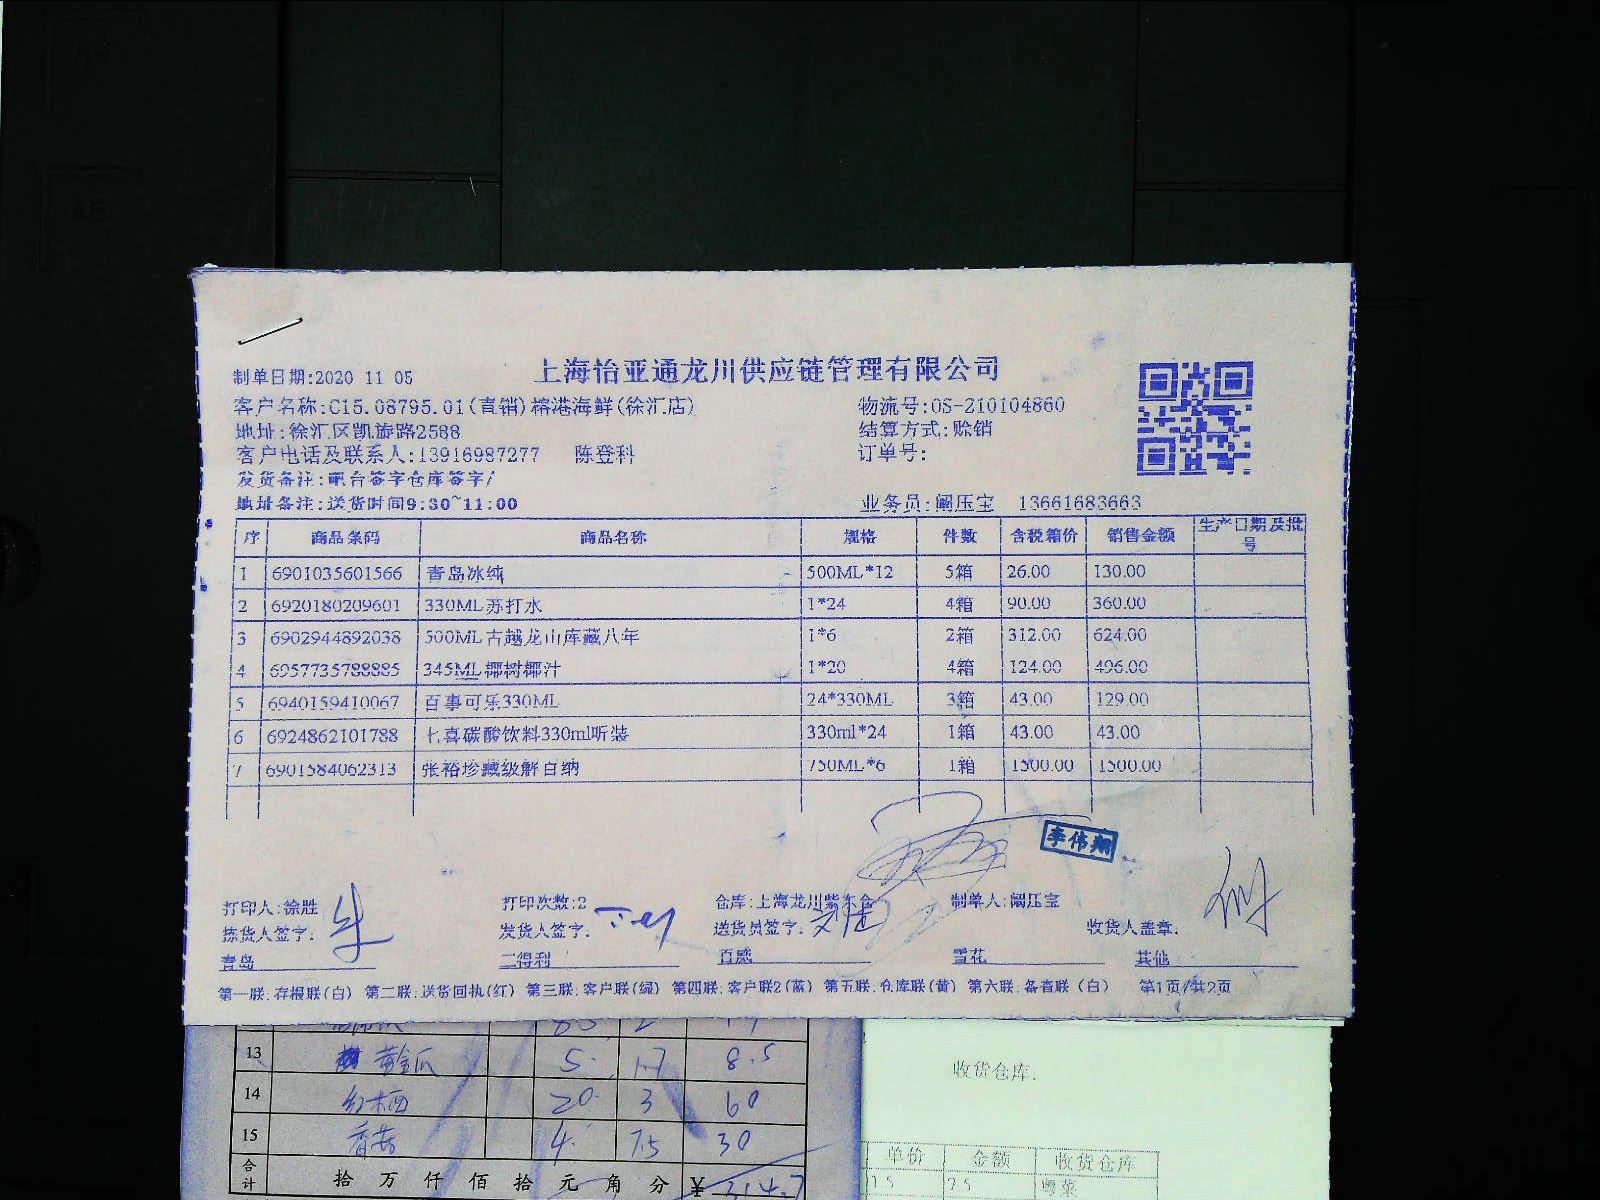 上海怡亚通龙川供应链管理有限公司
制单日期:2020 11 05
客户名称:C15.08795.01(青销)榕港海鲜(徐汇店) 物流号:OS-210104860
地址:徐汇区凯旋路2588 结算方式:赊销
客户电话及联系人:13916987277 陈登科 订单号:
发货备注:吧台签字仓库签字/
地址备注:送货时间9:30~11:00 业务员:阚压宝 13661683663
序 商品条码 商品名称 规格 件数 含税箱价 销售金额 生产日期及批号
1 6901035601566 青岛冰纯 500ML*12 5箱 26.00 130.00
2 6920180209601 330ML苏打水 1*24 4箱 90.00 360.00
3 6902944892038 500ML古越龙山库藏八年 1*6 2箱 312.00 624.00
4 6957735788885 345ML椰树椰汁 1*20 4箱 124.00 496.00
5 6940159410067 百事可乐330ML 24*330ML 3箱 43.00 129.00
6 6924862101788 七喜碳酸饮料330ml听装 330ml*24 1箱 43.00 43.00
7 6901584062313 张裕珍藏级解百纳 750ML*6 1箱 1500.00 1500.00
李伟翔
打印人:徐胜 打印次数:2 仓库:上海龙川紫东仓 制单人:阚压宝
拣货人签字: 发货人签字: 送货员签字: 收货人盖章:
青岛 三得利 百威 雪花 其他
第一联:存根联(白) 第二联:送货回执(红) 第三联:客户联(绿) 第四联:客户联2(蓝) 第五联:仓库联(黄) 第六联:备查联(白) 第1页/共2页
13 黄金瓜 5 1.7 8.5
14 20 3 60
15 香菇 4 7.5 30
合计 拾 万 仟 佰 拾 元 角 分 ¥
收货仓库:
单价 金额 收货仓库
7.5 粤菜